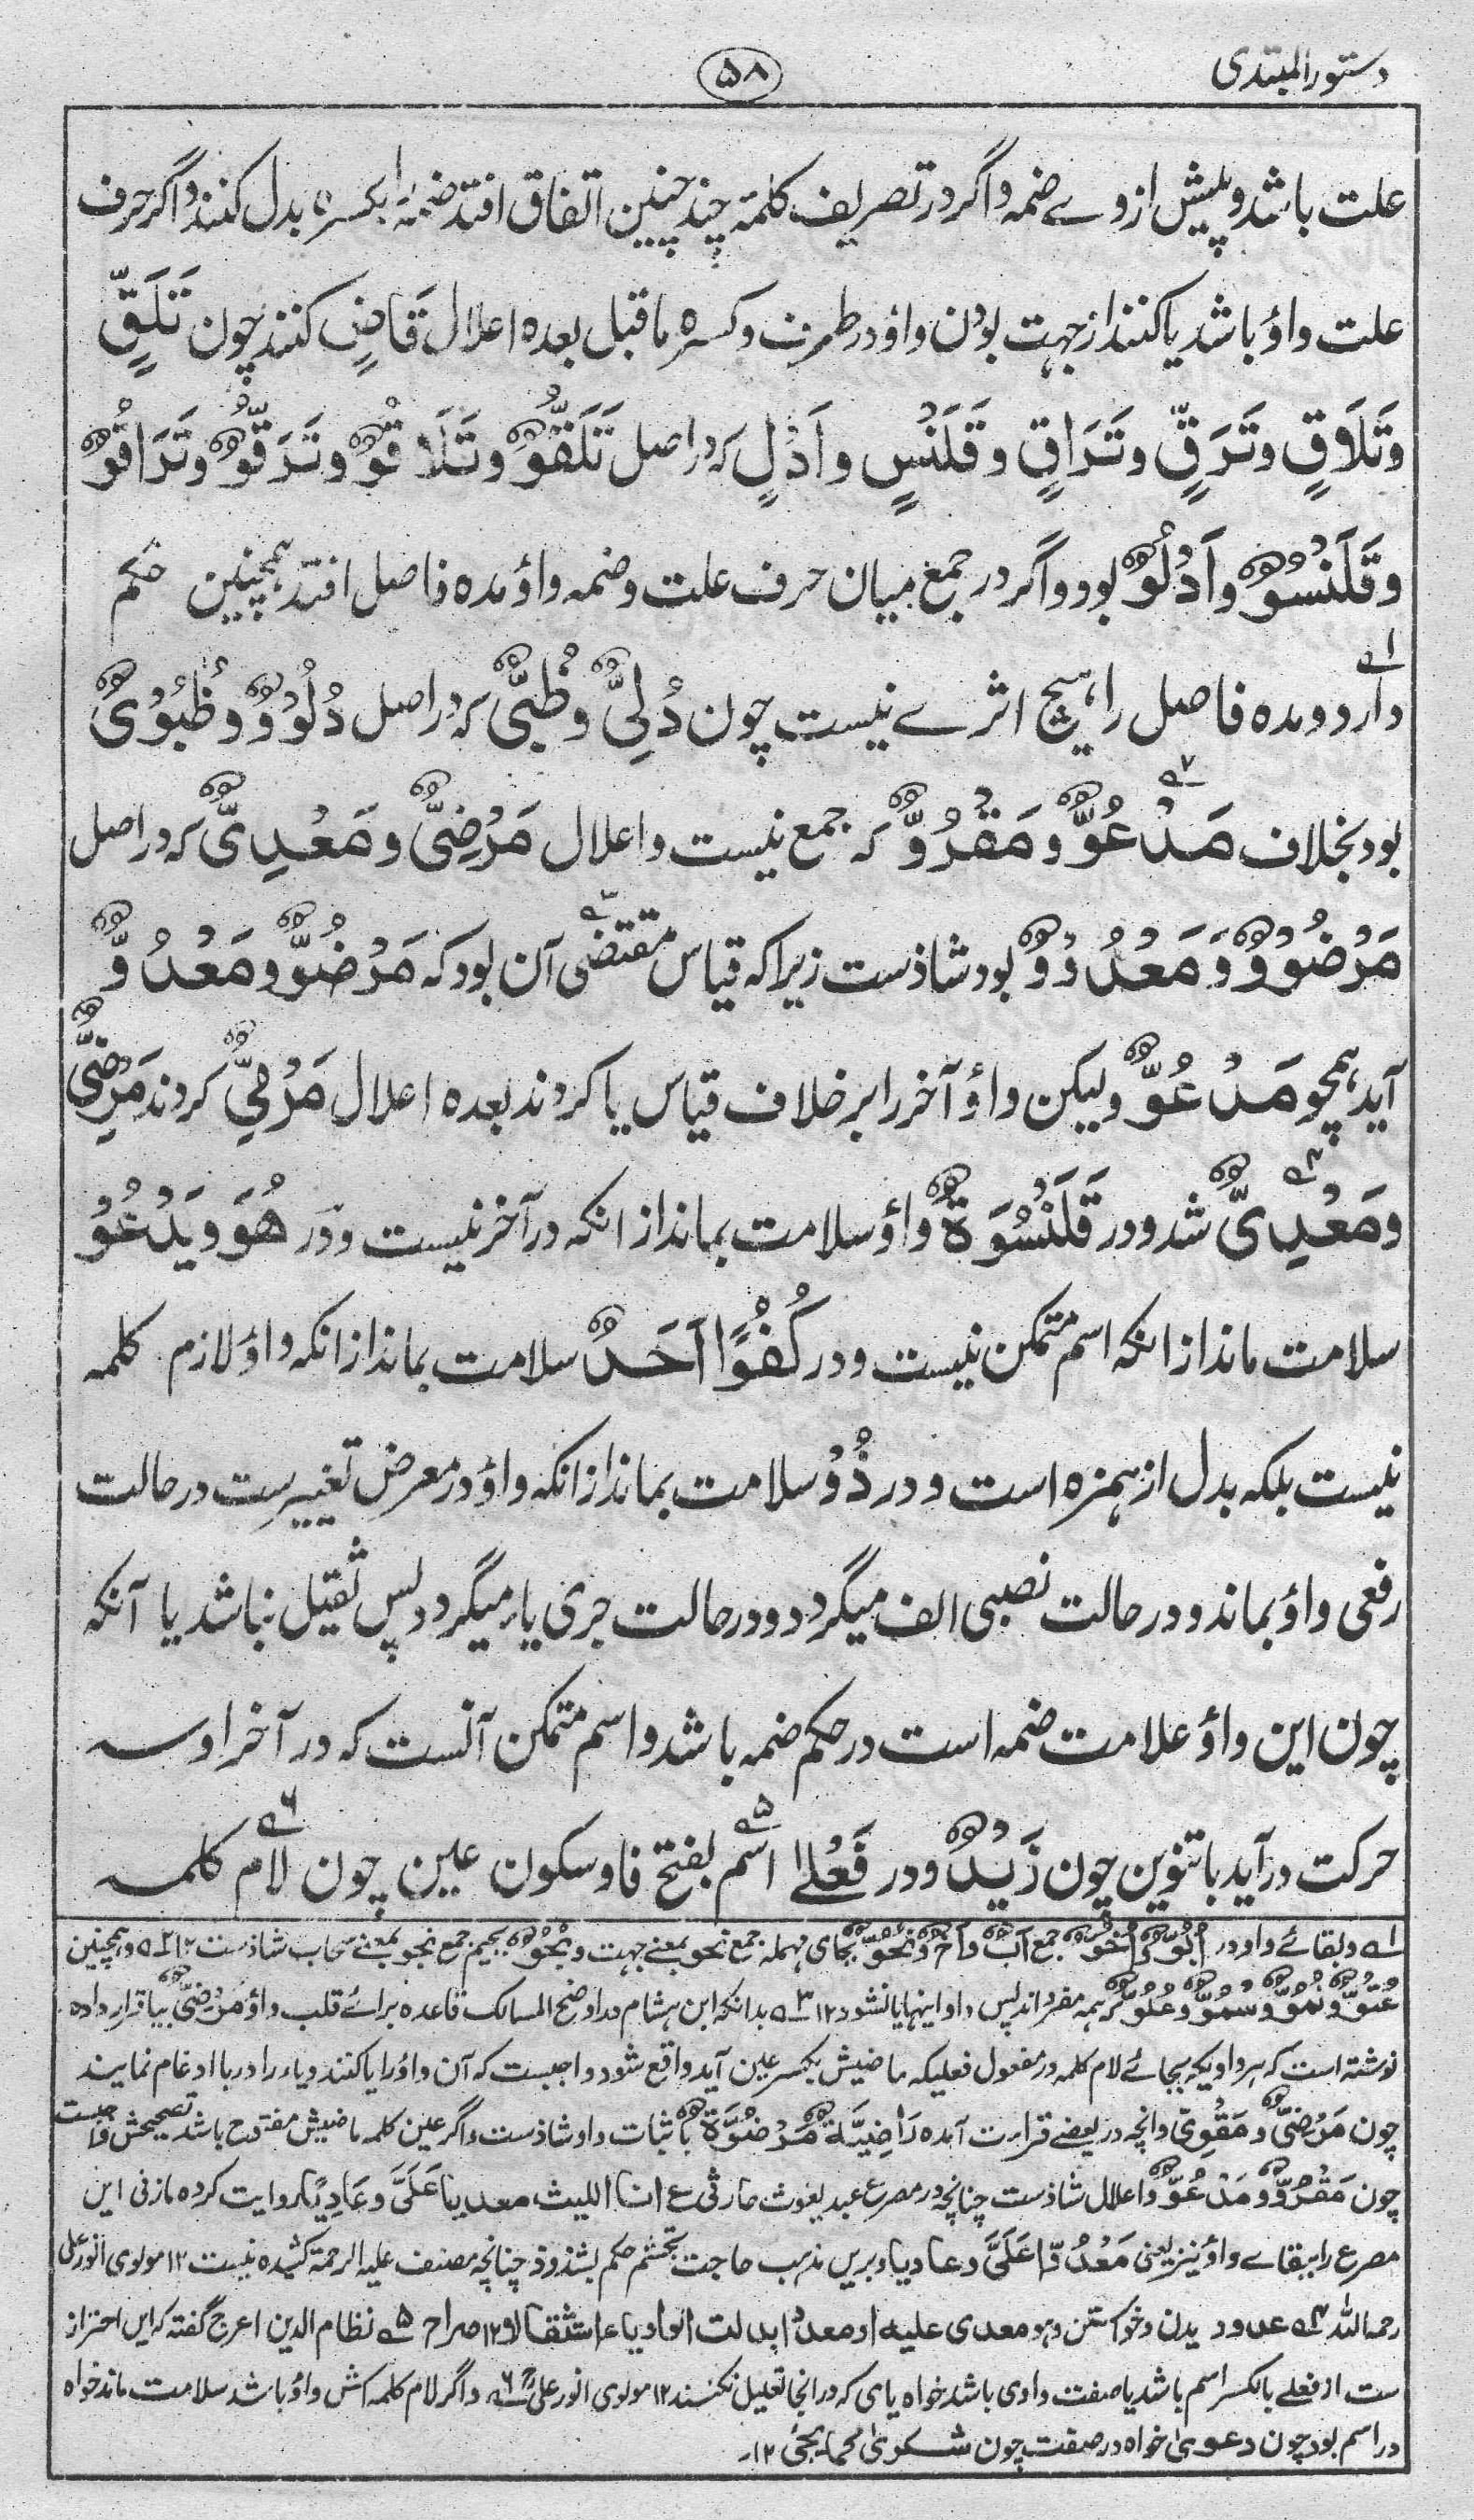 دستور المبتدی
۵۸
علت باشد و پیش از وے ضمہ و اگر در تصریف کلمۂ چند چنین اتفاق افتد ضمہ را بکسرہ بدل کنند و اگر حرف
علت واؤ باشد یا کنند از جہت بودن واؤ در طرف و کسرہ ماقبل بعدہ اعلال قَاضٍ کنند چون تَلَقٍّ
وَتَلَاقٍ وَتَرَقٍّ وتَرَاقٍ وقَلَنْسٍ و اَدْلٍ کہ در اصل تَلَقُّوٌ وتَلَاقُوٌ وتَرَقُّوٌ وتَرَاقُوٌ
وقَلَنْسُوٌ و اَدْلُوٌ بود و اگر در جمع میان حرف علت و ضمہ واؤ مدہ فاصل افتد ہمچنین حکم
دارد و مدہ فاصل را ہیچ اثرے نیست چون دُلِیٌّ و ظُبِیٌّ کہ در اصل دُلُوْوٌ و ظُبُوْیٌ
بود بخلاف مَدْعُوٌّ و مَقْرُوٌّ کہ جمع نیست و اعلال مَرْضِیٌّ و مَعْدِیٌّ کہ در اصل
مَرْضُوْوٌ وَ مَعْدُوْوٌ بود شاذست زیرا کہ قیاس مقتضی آن بود کہ مَرْضُوٌّ و مَعْدُوٌّ
آید ہمچو مَدْعُوٌّ ولیکن واؤ آخر را بر خلاف قیاس یا کردند بعدہ اعلال مَرْمِیٌّ کردند مَرْضِیٌّ
و مَعْدِیٌّ شد و در قَلَنْسُوَةٌ واؤ سلامت بماند از انکہ در آخر نیست و در هُوَ و یَدْعُوْ
سلامت ماند از انکہ اسم متمکن نیست و در كُفُوًا اَحَدٌ سلامت بماند از انکہ واؤ لازم کلمہ
نیست بلکہ بدل از ہمزہ است و در ذُوْ سلامت بماند از انکہ واؤ در معرض تغییرست در حالت
رفعی واؤ بماند و در حالت نصبی الف میگردد و در حالت جری یاء میگردد پس ثقیل نباشد یا آنکہ
چون این واؤ علامت ضمہ است در حکم ضمہ باشد و اسم متمکن آنست کہ در آخر او سہ
حرکت در آید با تنوین چون زَیْدٌ و در فَعْلٰی اسم بفتح فا و سکون عین چون لام کلمہ
۱ے و بقائے واو در اُبُوٌّ و اُخُوٌّ جمع اَبٌ و اَخٌ و نُحُوٌّ بحای مہملہ جمع نحو بمعنے جہت و نُجُوٌّ بجیم جمع نجو بمعنے سحاب شاذست ۱۲ ۲ے و ہمچنین
عُتُوٌّ و نُمُوٌّ و سُمُوٌّ و عُلُوٌّ کہ ہمہ مفرد اند پس واو اینہا یا نشود ۱۲ ۳ے بدانکہ ابن ہشام در اوضح المسالک قاعدہ برائے قلب واؤ مَرْضِیٌّ بیا قرار دادہ
نوشتہ است کہ ہر واویکہ بجائے لام کلمہ در مفعول فعلیکہ ماضیش بکسر عین آید واقع شود واجبست کہ آن واؤ را یا کنند و یاء را در یا ادغام نمایند
چون مَرْضِیٌّ و مَقْوِیٌّ و انچہ در بعضے قراءت آمدہ رَاضِیَةً مَرْضُوَّةً باثبات واو شاذست و اگر عین کلمہ ماضیش مفتوح باشد تصحیحش واجبست
چون مَقْرُوٌّ و مَدْعُوٌّ و اعلال شاذست چنانچہ در مصرع عبد یغوث حارثی ع انا اللیث معدیا عَلَیَّ و عَادِیًا روایت کردہ مازنی این
مصرع را ببقاے واؤ نیز یعنی مَعْدُوًّا عَلَیَّ و عادیا و بریں مذہب حاجت تجشم حکم بشذوذ چنانچہ مصنف علیہ الرحمۃ کشیدہ نیست ۱۲ مولوی انور علی
رحمہ اللہ ۴ے عدو دویدن و خواستن وهو معدی علیه او معدو ابدلت الواو یاء استثقالا ۱۲ صراح ۵ے نظام الدین اعرج گفتہ کہ این احتراز
ست از فعلے بالکسر اسم باشد یا صفت واوی باشد خواہ یای کہ در انجا تعلیل نکنند ۱۲ مولوی انور علی ۶ے و اگر لام کلمہ اش واؤ باشد سلامت ماند خواہ
در اسم بود چون دعوی خواہ در صفت چون شکوی ۱۲